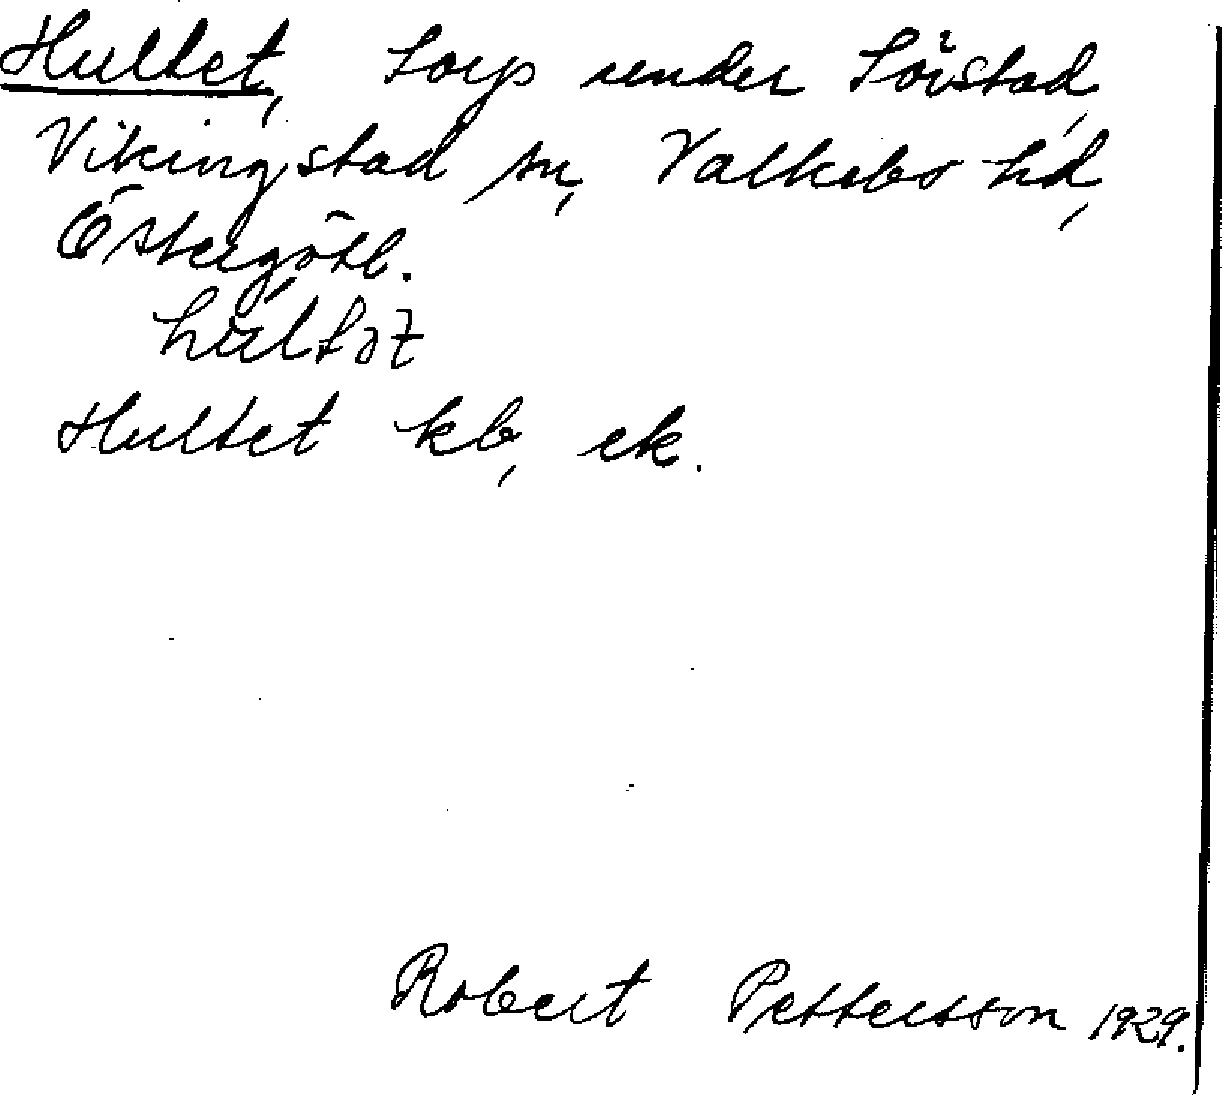 Hultet, torp under Lövstad,
Vikingstad sn, Valkebo hd,
Östergötl.
Hultet kb, ek.
Robert Pettersson 1929.